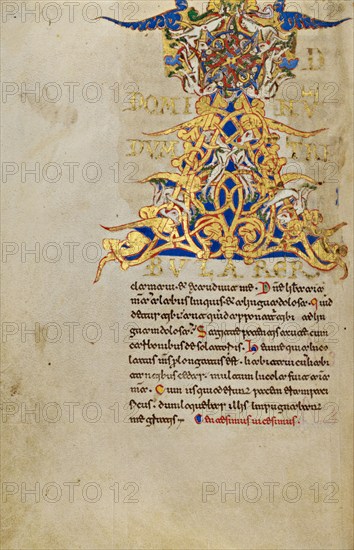 AD
DOMINVM
DVM TRI
BVLARER
clamavi et exaudivit me. Dne libera ani
mā meā a labiis iniquis et a lingua dolosa. Quid
detur tibi aut quid apponatur tibi ad lin
guam dolosā. Sagitte potentis acute cum
carbonibus desolatoriis. Heu me quia inco
latus ms plongatus est. habitavi cum habi
tantibus cedar. multum incola fuit anima
mea. Cum is qui oderunt pacem eram paci
ficus. dum loquebar illis impugnabant
me gratis. Centesimus vicesimus.
PHOTO12